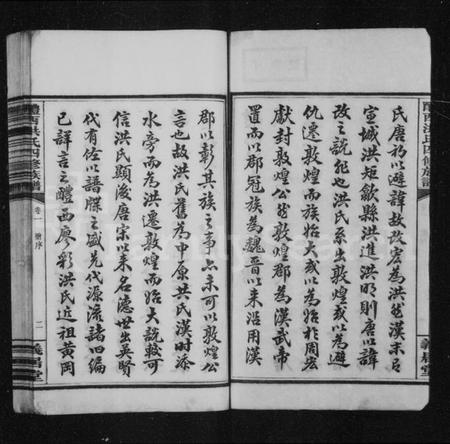 氏唐初以避諱故改宏為洪然漢末已
宣城洪矩歙縣洪進洪明則唐以諱
改之說非也洪氏系出敦煌或以為避
仇遷敦煌而族始大或以為始於周宏
獻封敦煌公然敦煌郡為漢武帝
置而以郡冠族為魏晉以來沿用漢
郡以彰其族之事亦未可以敦煌公
言也故洪氏舊為中原共氏漢時添
水旁而為洪遷敦煌而始大說較可
信洪氏顯後唐宗以來名德世出英賢
代有佐以譜牒之盛兄代源流諸旧編
已詳言之醴西廖彩洪氏近祖黄岡
醴西洪氏四修族譜
卷一
序
二
義居堂
醴西洪氏四修族譜
義居堂